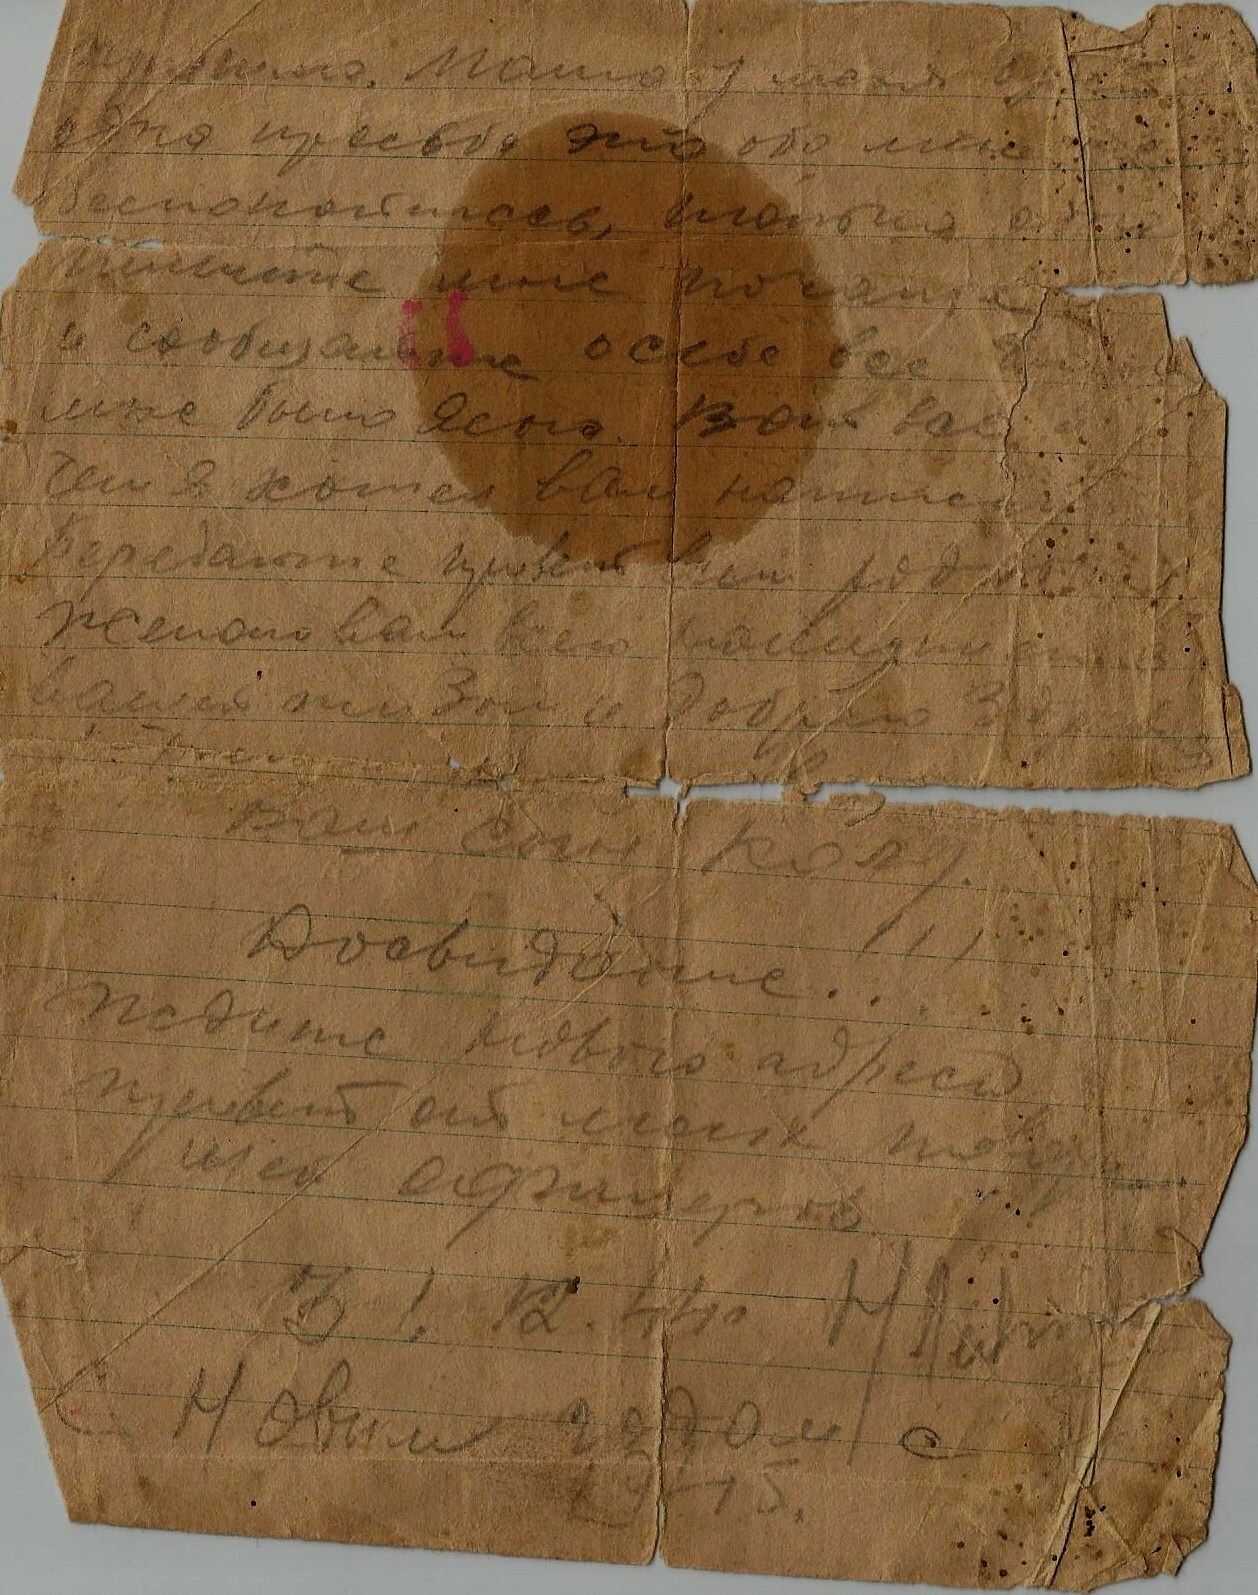 пришло. Мама у меня
одна просьба это обо мне не
беспокойтесь, только одно
пишите мне почаще
и сообщайте о себе все
мне было ясно. Вот все
чем я хотел вам написать
Передайте привет всем родным
Желаю вам всего наилучшего в
вашей жизни и доброго здоровья
Ваш сын Коля.
Досвидание...!!!
Ждите нового адреса
привет от моих товари
щей офицеров
31. 12. 44.
С Новым годом с
1945.